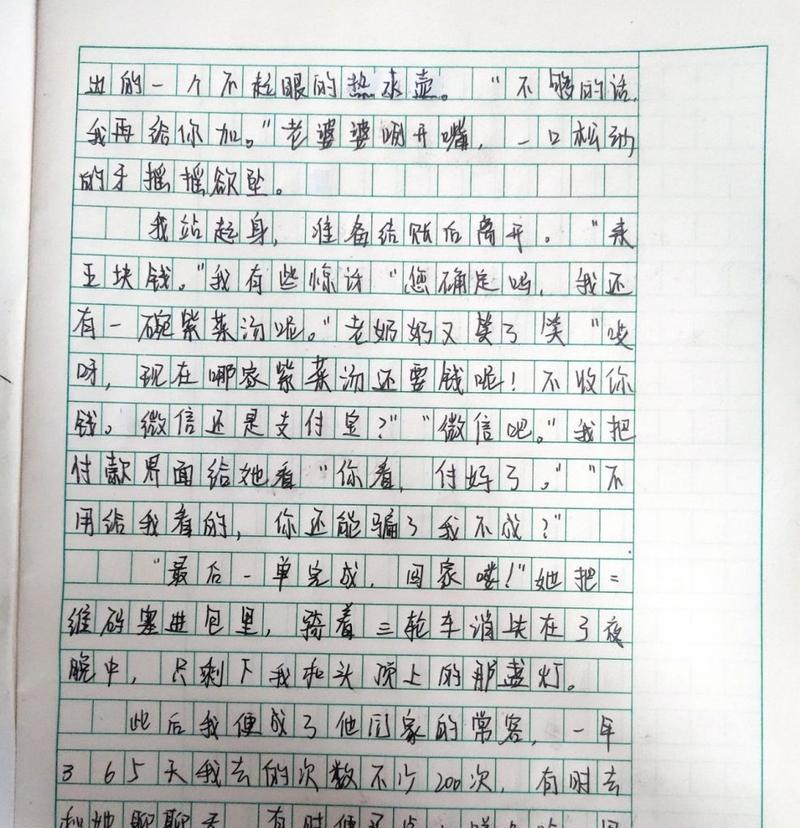 出的一个不起眼的热水壶。“不够的话，
我再给你加。”老婆婆咧开嘴，一口松动
的牙摇摇欲坠。
我站起身，准备结账后离开。“来
五块钱。”我有些惊讶“您确定吗，我还
有一碗紫菜汤呢。”老奶奶又笑了笑“哎
呀，现在哪家紫菜汤还要钱呢！不收你
钱。微信还是支付宝？”“微信吧。”我把
付款界面给她看“你看，付好了。”“不
用给我看的，你还能骗了我不成？”
“最后一单完成，回家喽！”她把二
维码塞进包里，骑着三轮车消失在了夜
晚中，只剩下我和头顶上的那盏灯。
此后我便成了他们家的常客，一年
365天我去的次数不少200次，有时去
和她聊聊天，有时便